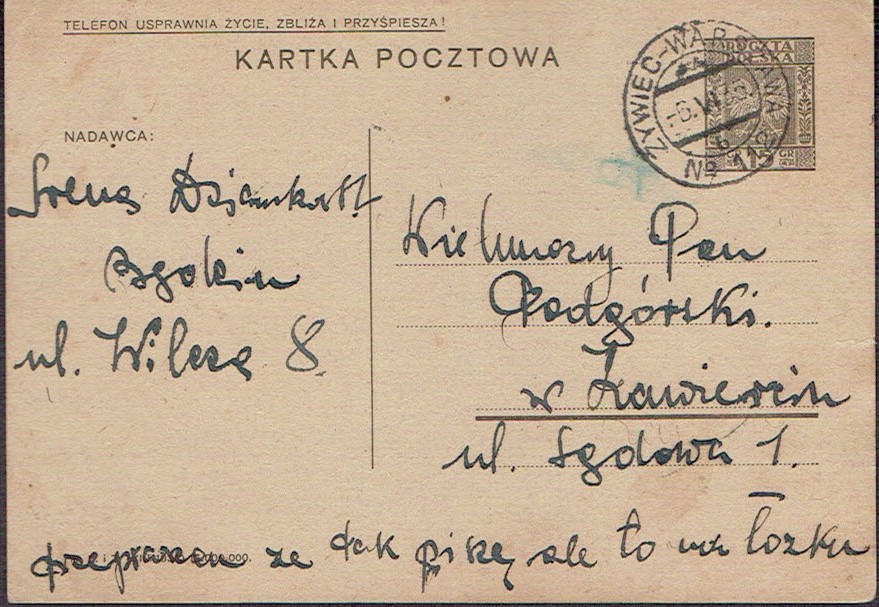 TELEFON USPRAWNIA ŻYCIE, ZBLIŻA I PRZYŚPIESZA!
KARTKA POCZTOWA
POCZTA
POLSKA
ŻYWIEC-WARSZAWA
No
15 GR
NADAWCA:
Irena
ul. Wilcza 8
Wielmożny Pan
Podgórski.
w Zawierciu
ul. Sądowa 1.
przepraszam że tak piszę ale to na łóżku
000.000.